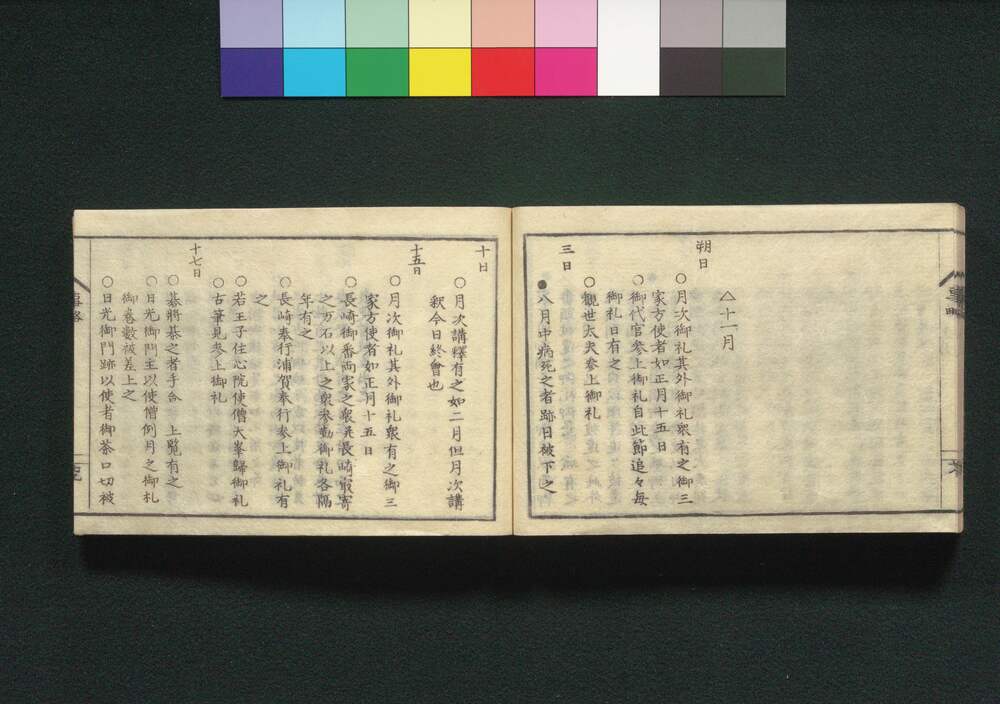 △十一月
朔日
○月次御礼其外御礼衆有之御三
家方使者如正月十五日
○御代官参上御礼自此節追々毎
御礼日有之
三日
○観世太夫参上御礼
●八月中病死之者跡目被下之
十日
○月次講釋有之如二月但月次講
釈今日終會也
十五日
○月次御礼其外御礼衆有之御三
家方使者如正月十五日
○長崎御番両家之衆并長崎最寄
之万石以上之衆参勤御礼各隔
年有之
○長崎奉行浦賀奉行参上御礼有
之
○若王子住心院使僧大峯歸御礼
○古筆見参上御礼
十七日
○碁将棊之者手合 上覧有之
○日光御門主以使僧例月之御札
御巻数被差上之
○日光御門跡以使者御茶口切被